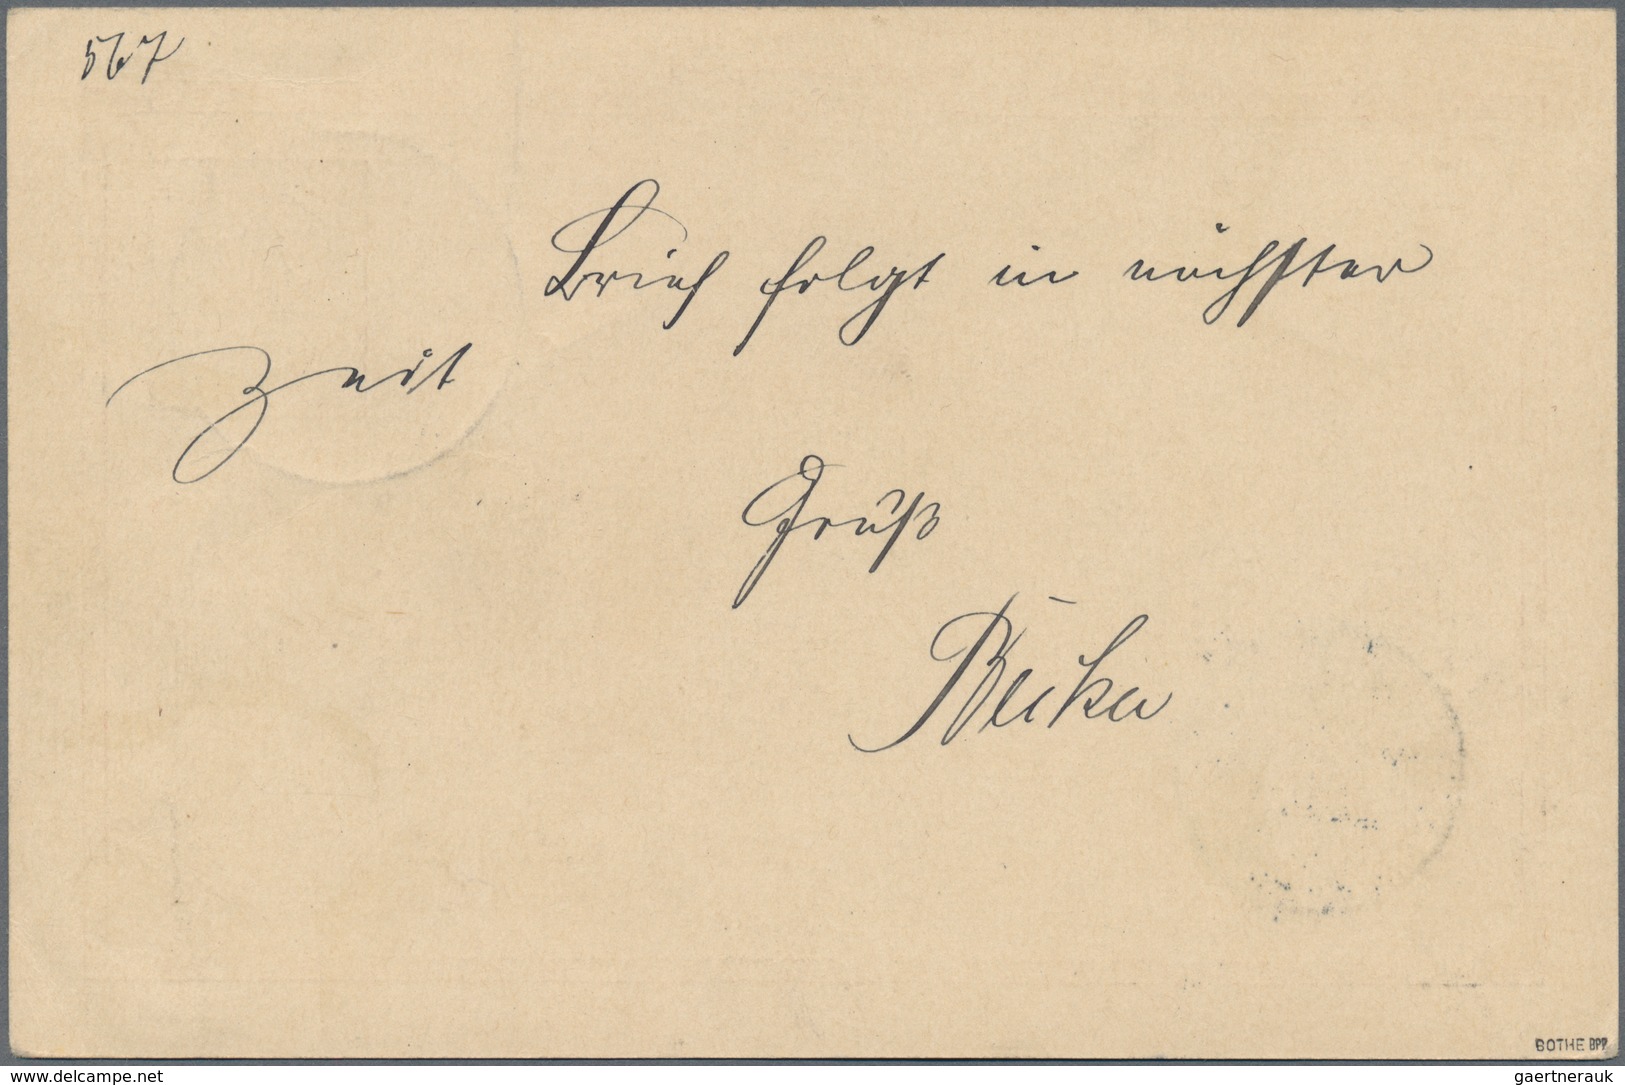 567
Brief folgt in nächster
Zeit
Gruß
BOTHE BPP
www.delcampe.net
gaertnerauk